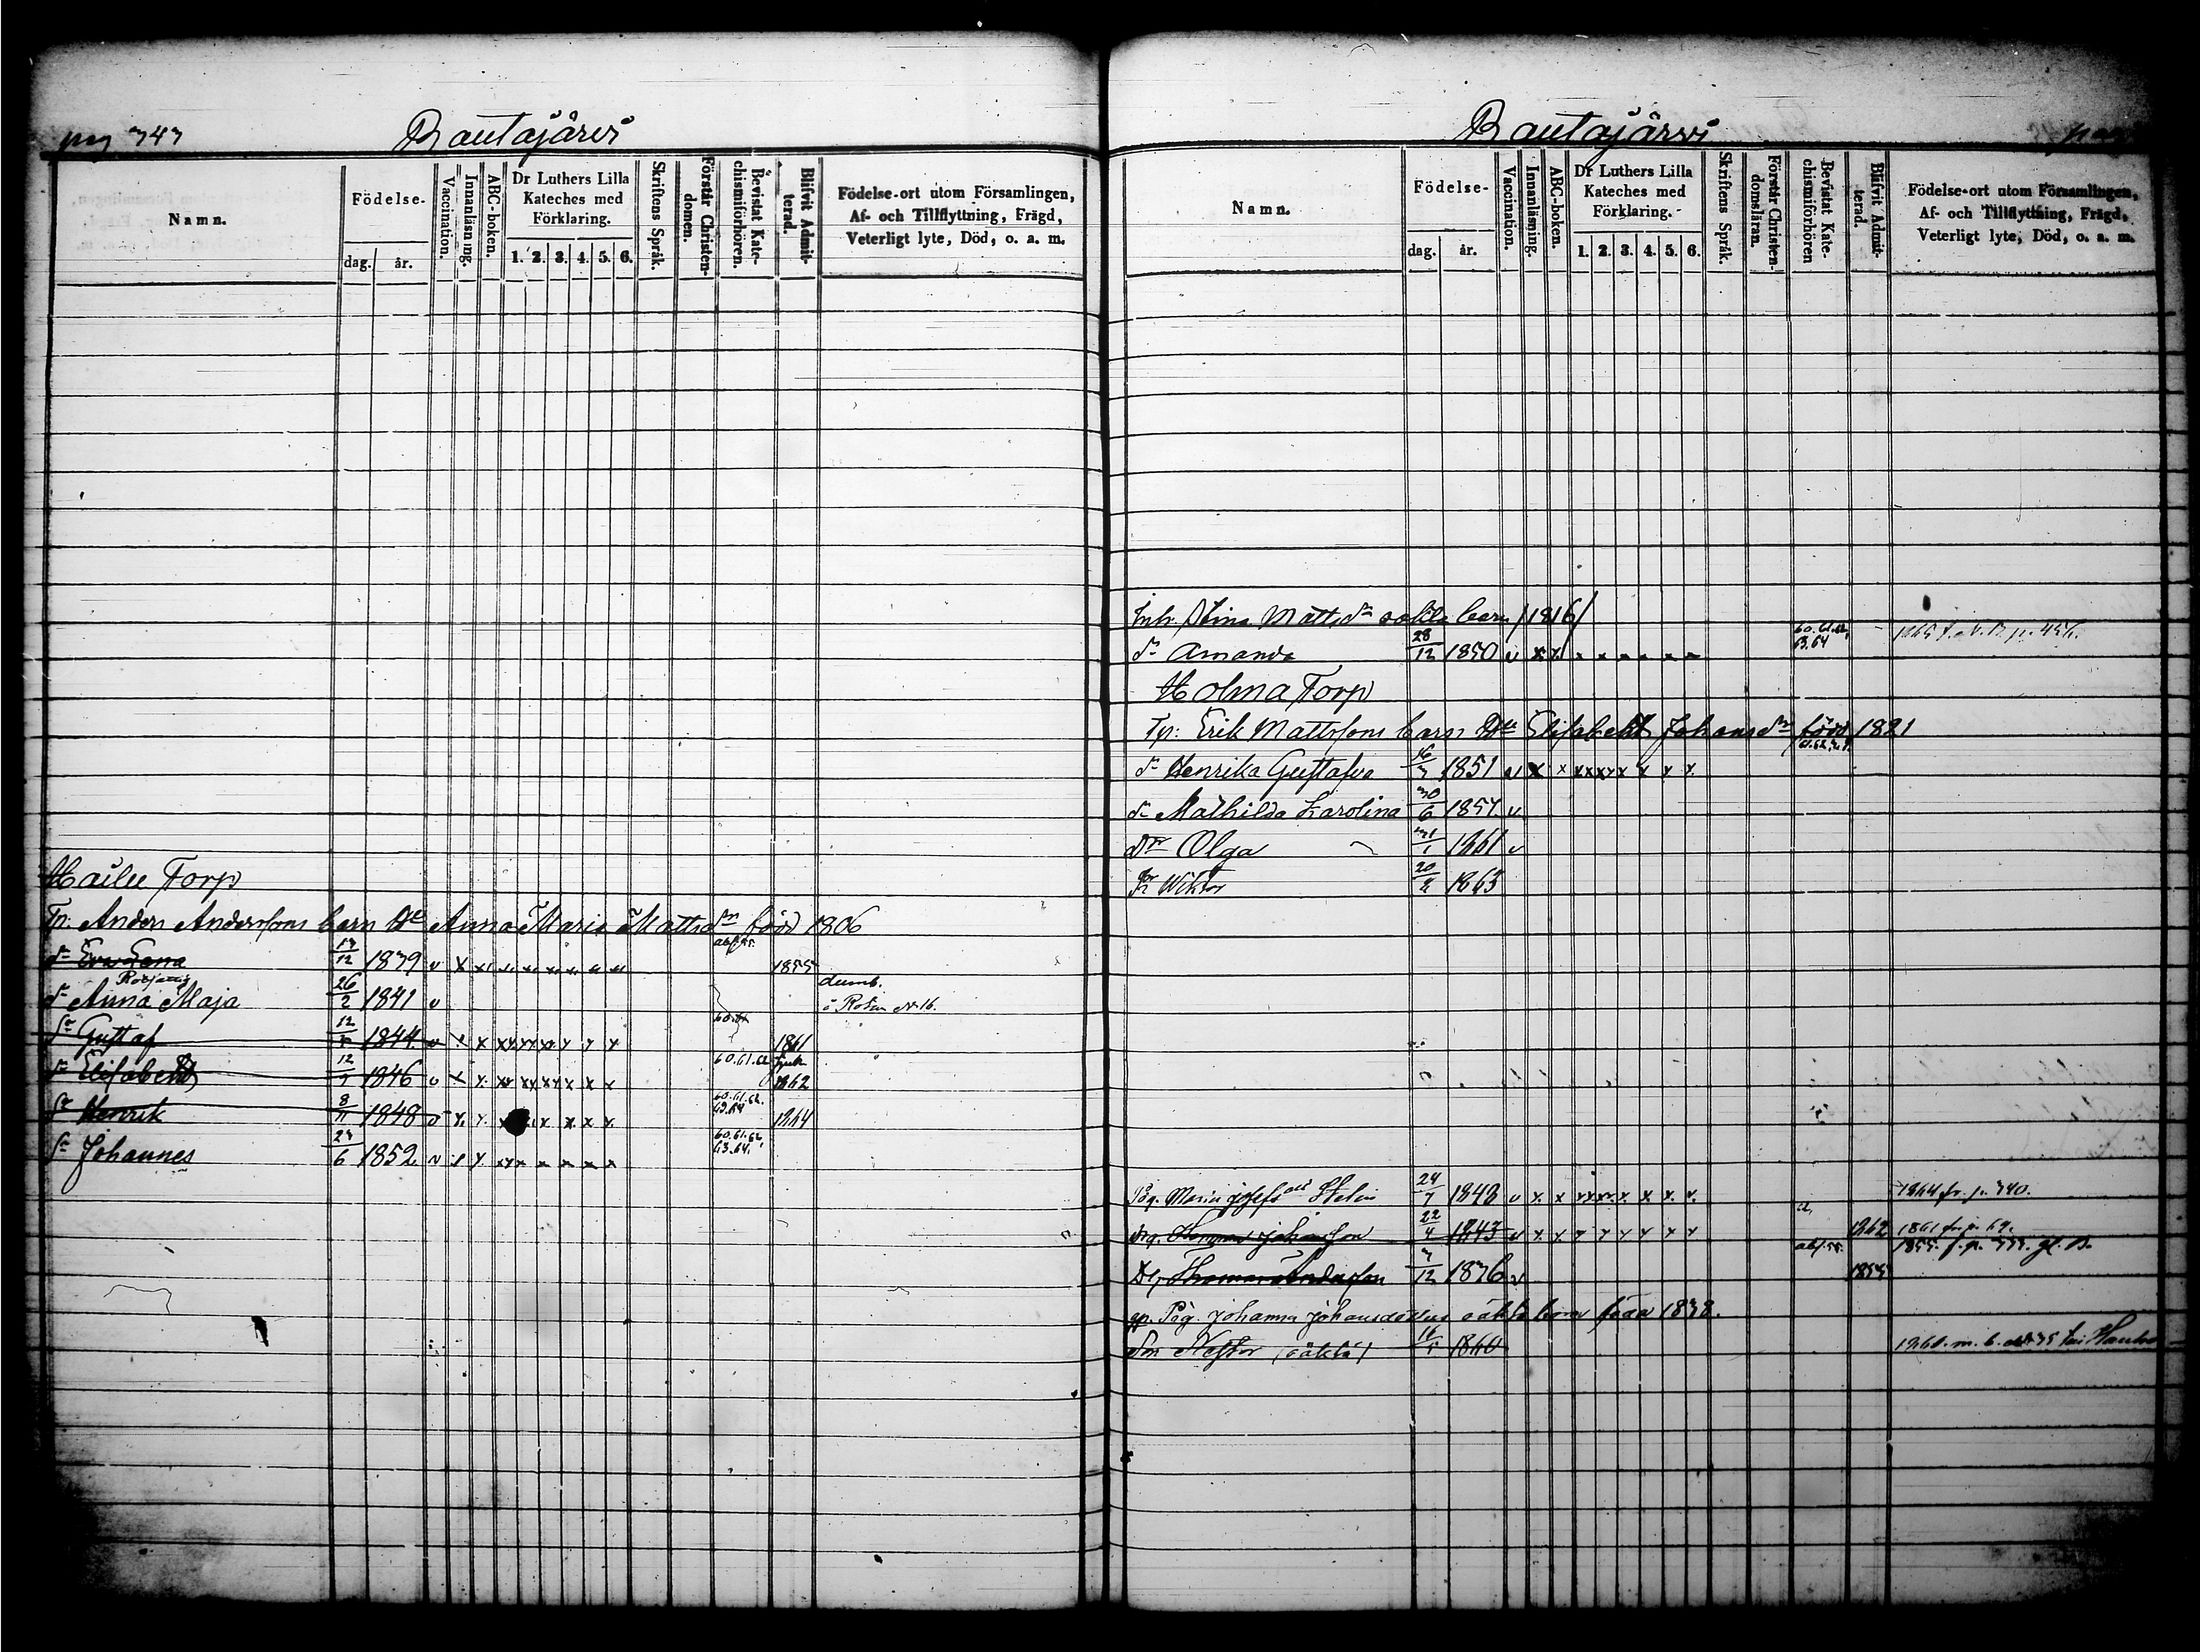 pag 343
Rautajärvi
Namn.
Födelse-
dag. år.
Vaccination.
Innanläsning.
ABC-boken.
Dr Luthers Lilla Kateches med Förklaring.
1. 2. 3. 4. 5. 6.
Skriftens Språk.
Förstår Christendomen.
Bevistat Katechismiförhören.
Blifvit Admitterad.
Födelse-ort utom Församlingen,
Af- och Tillflyttning, Frägd,
Veterligt lyte, Död, o. a. m.
Torp
Tp. Anders Anderssons barn Anna Maria Mattsdr född 1806
dr Eva Lena 13/12 1839 1855
dr Anna Maja 26/2 1841 v dumb.
Sn Gustaf 12 1844 1861
dr Elisabeth 12 1846 60.61.62 1862
Sn Henrik 8/11 1848 60.61.62. 63.64 1864
Sn Johannes 23/6 1852 60.61.62, 63.64.
Rautajärvi
Namn.
Födelse-
dag. år.
Vaccination.
Innanläsning.
ABC-boken.
Dr Luthers Lilla Kateches med Förklaring.
1. 2. 3. 4. 5. 6.
Skriftens Språk.
Förstår Christendomsläran.
Bevistat Katechismiförhören
Blifvit Admitterad.
Födelse-ort utom Församlingen,
Af- och Tillflyttning, Frägd,
Veterligt lyte, Död, o. a. m.
Inh. Stina Mattsdr oäkta barn /1816/
dr Amanda 28/12 1850 60.61.62, 63.64
Holma Torp
Tp: Erik Mattssons barn Elisabeth Johansdr född 1821
dr Henrika Gustafva 16/3 1851
dr Mathilda Karolina 30/6 1857 v
dr Olga 31/1 1861 v
Sn Wiktor 20/2 1863
Pig. Maria Josefsdr 24/7 1843 1864 fr. p. 340.
drg. Herman Johansson 22/4 1843 1862 1861 fr. p. 69.
Thomas Andersson 3/12 1836 v 1855
Pig. Johanna Johansdotters oäkta barn född 1838.
Son Nestor (oäkta) 1860